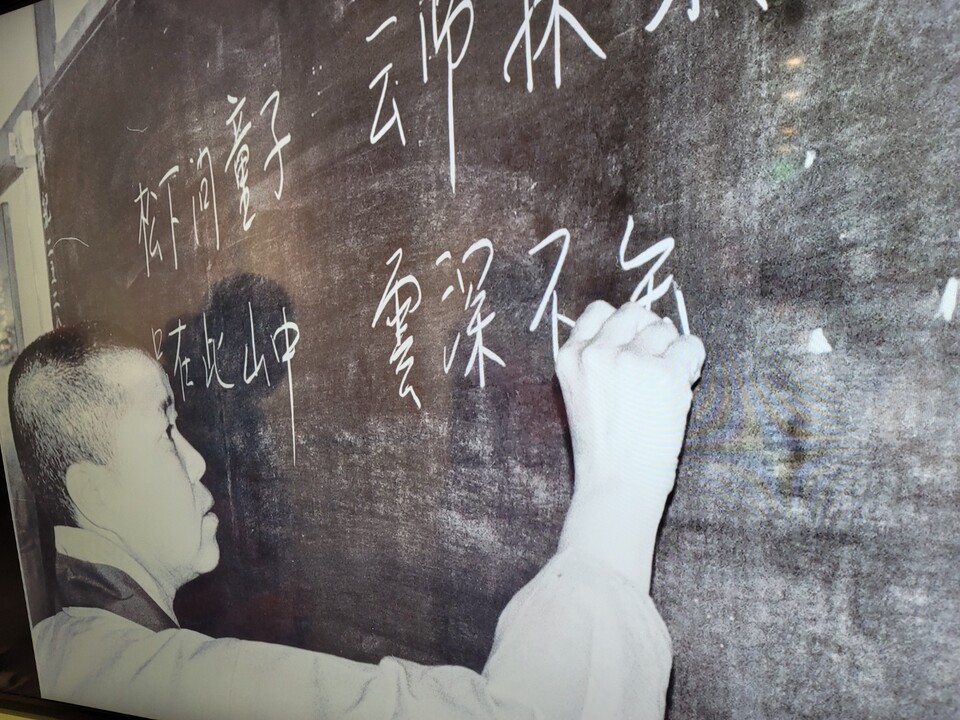 松下问童子 云师採
只在此山中 雲深不